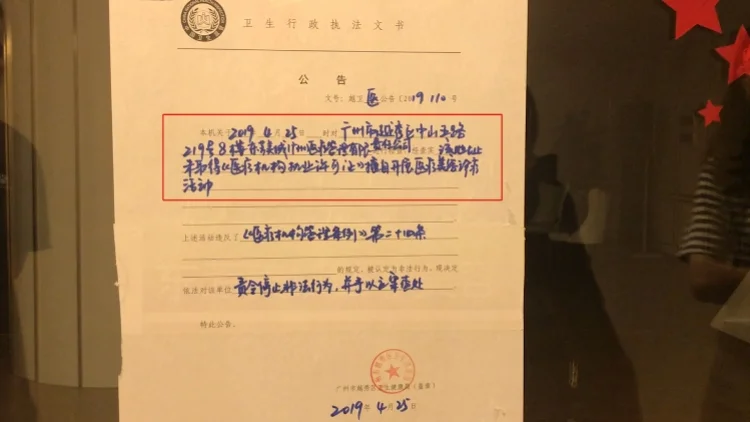 卫生行政执法文书
公告
文号：越卫医公告〔2019〕110号
本机关于2019年4月25日 时对广州市越秀区中山五路
219号8楼 医疗管理有限责任公司
未取得《医疗机构执业许可证》擅自开展医疗美容诊疗
活动
上述活动违反了《医疗机构管理条例》第二十四条
的规定，被认定为非法行为，现决定
依法对该单位责令停止非法行为，并予以立案查处
特此公告。
广州市越秀区卫生健康局（盖章）
2019年4月25日